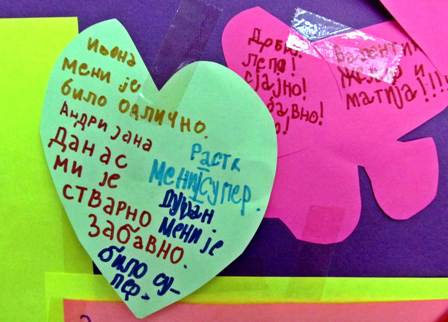 Ивона
мени је
било одлично.
Андријана
Данас
ми је
стварно
забавно.
Растк
мени супер.
Дуран
мени је
било су-
пер.
лепа!
сјајно!
Валентин
матија!!!!